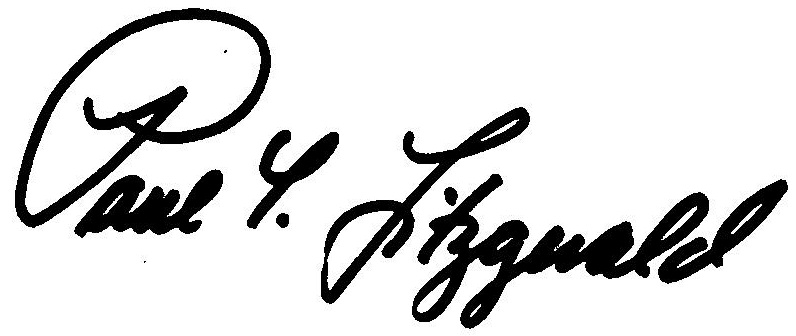 Paul F. Fitzgerald